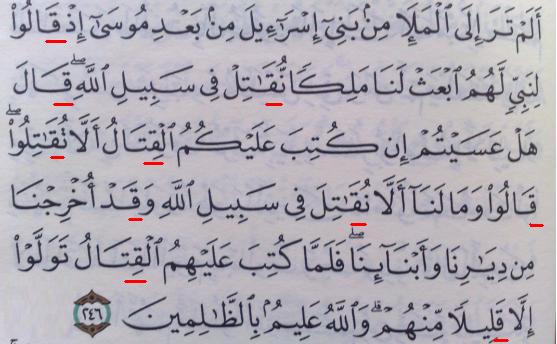 أَلَمْ تَرَ إِلَى ٱلْمَلَإِ مِنۢ بَنِىٓ إِسْرَٰٓءِيلَ مِنۢ بَعْدِ مُوسَىٰٓ إِذْ قَالُوا۟
لِنَبِىٍّ لَّهُمُ ٱبْعَثْ لَنَا مَلِكًا نُّقَٰتِلْ فِى سَبِيلِ ٱللَّهِ ۖ قَالَ
هَلْ عَسَيْتُمْ إِن كُتِبَ عَلَيْكُمُ ٱلْقِتَالُ أَلَّا تُقَٰتِلُوا۟ ۖ
قَالُوا۟ وَمَا لَنَآ أَلَّا نُقَٰتِلَ فِى سَبِيلِ ٱللَّهِ وَقَدْ أُخْرِجْنَا
مِن دِيَٰرِنَا وَأَبْنَآئِنَا ۖ فَلَمَّا كُتِبَ عَلَيْهِمُ ٱلْقِتَالُ تَوَلَّوْا۟
إِلَّا قَلِيلًا مِّنْهُمْ ۗ وَٱللَّهُ عَلِيمٌۢ بِٱلظَّٰلِمِينَ ٢٤٦